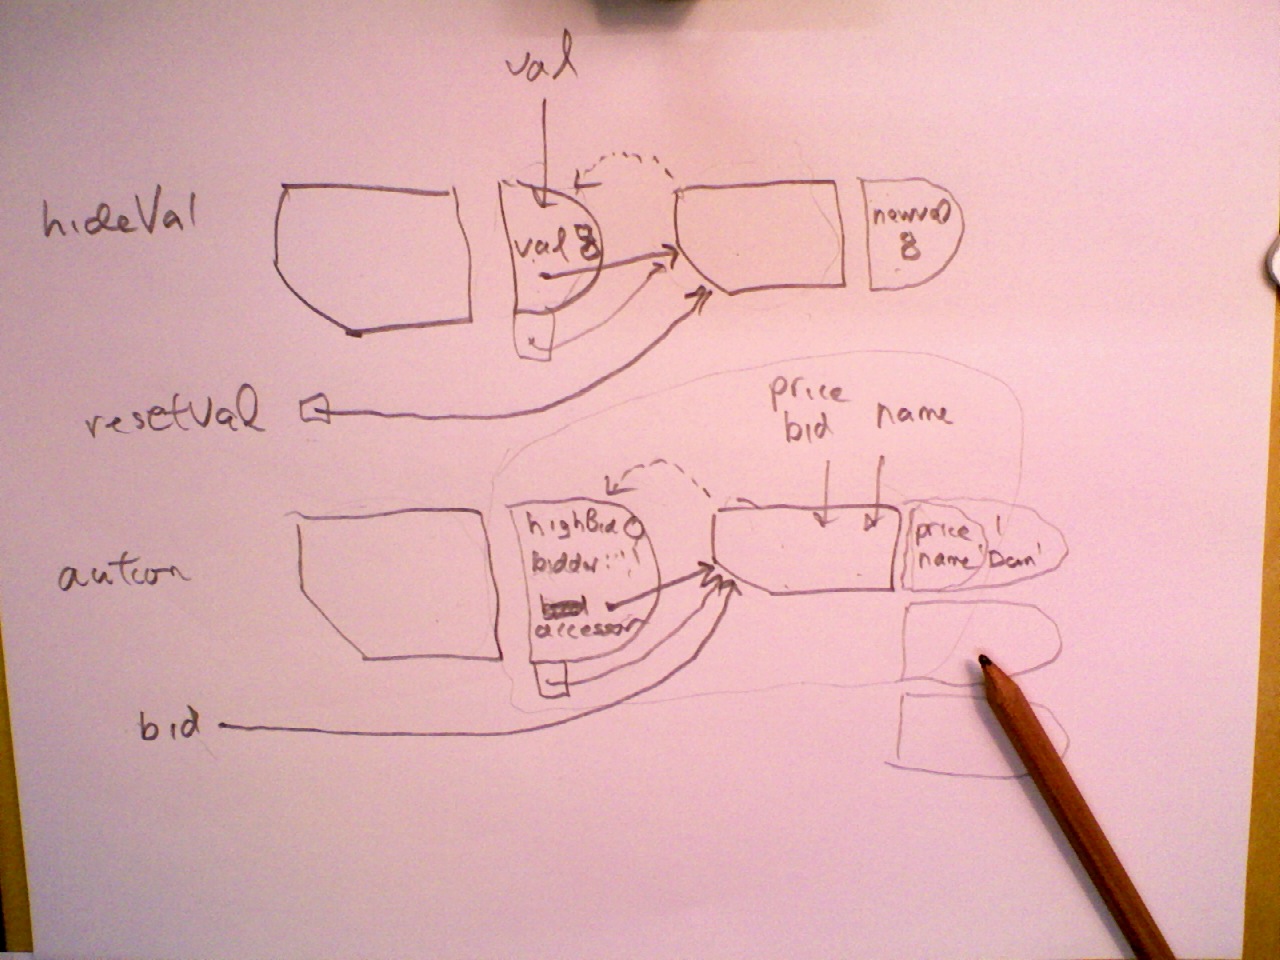 val
hideVal
val 8
newval
8
resetVal
price
bid
name
highBid 0
bidder: ''
accessor
price 1
name 'Dan'
bid